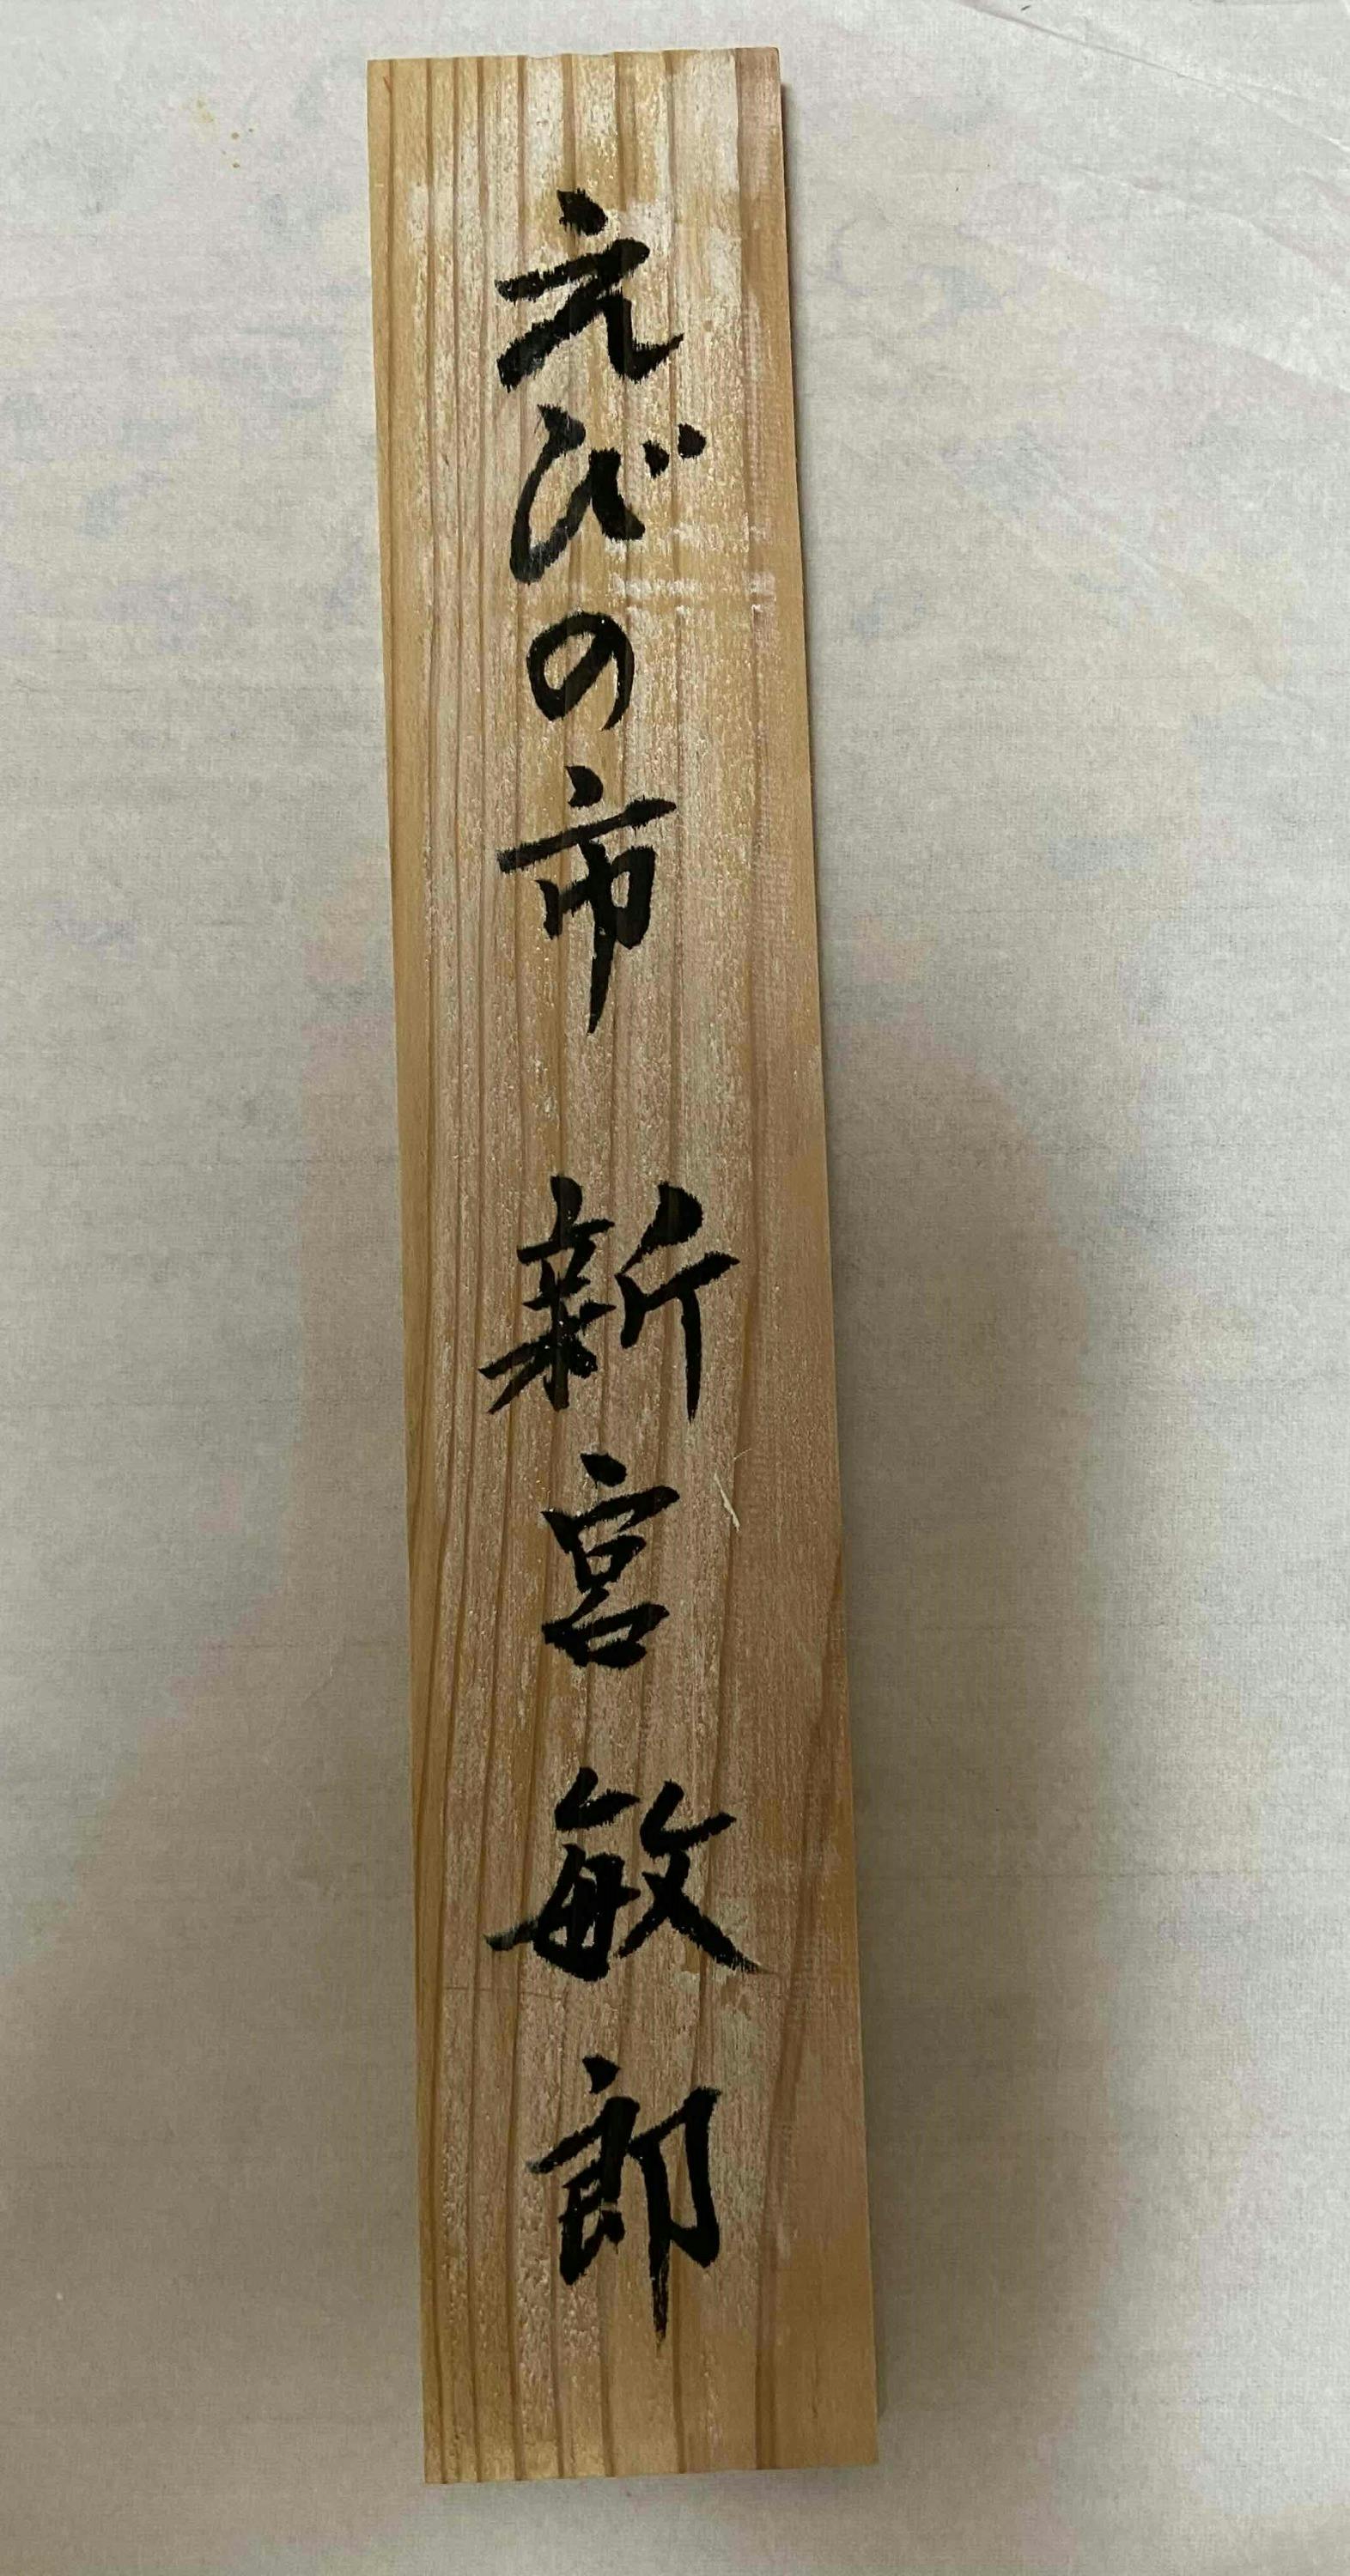 えびの市 新宮敏郎